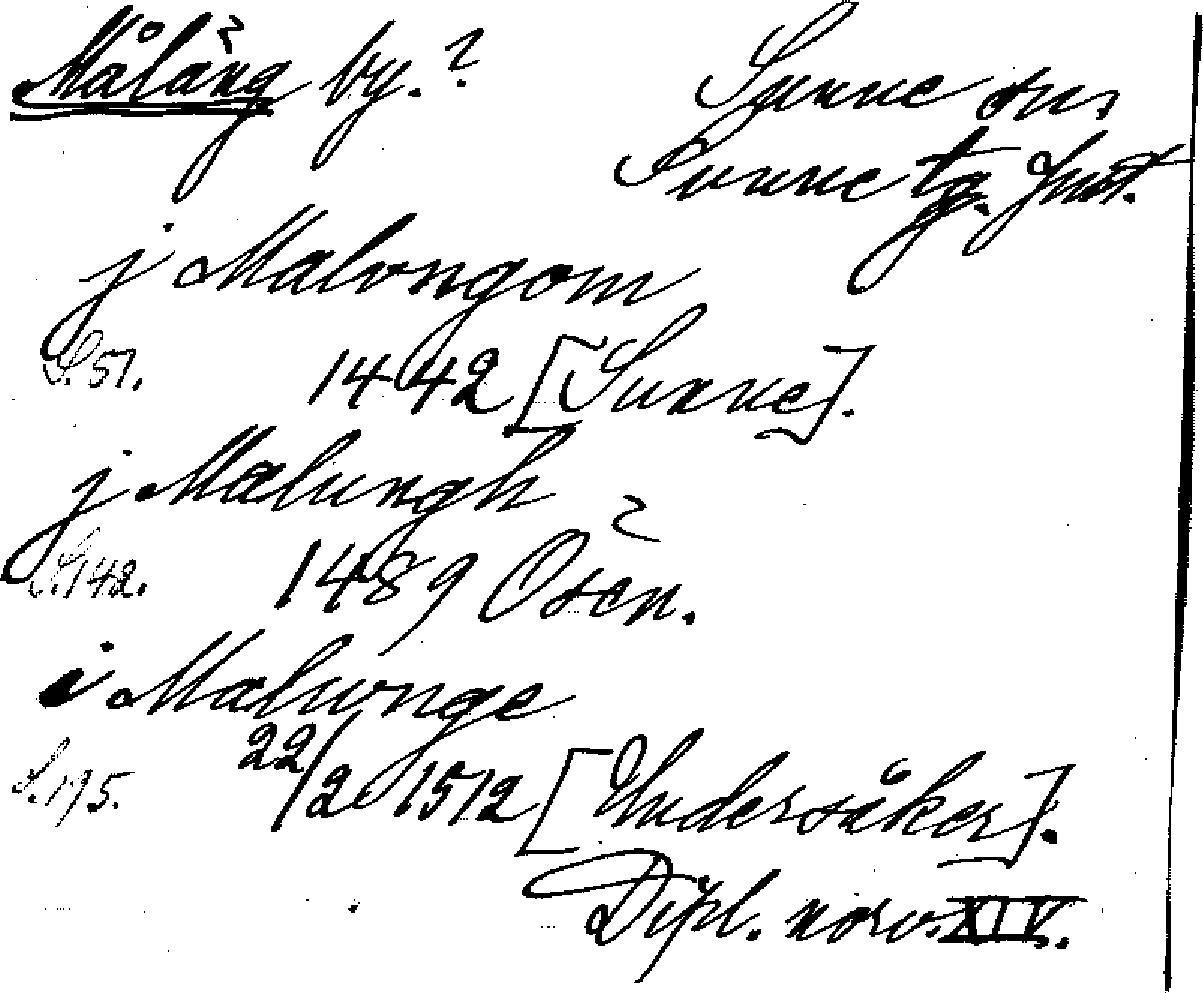 Målång by.?
Sunne sn.
Sunne tg. Jmt.
j Malongom
S. 51. 1442 [Sunne].
j Malungh
S. 142. 1489 Ösen.
i Malunge
S. 195. 22/2 1512 [Undersåker].
Dipl. norv. XIV.